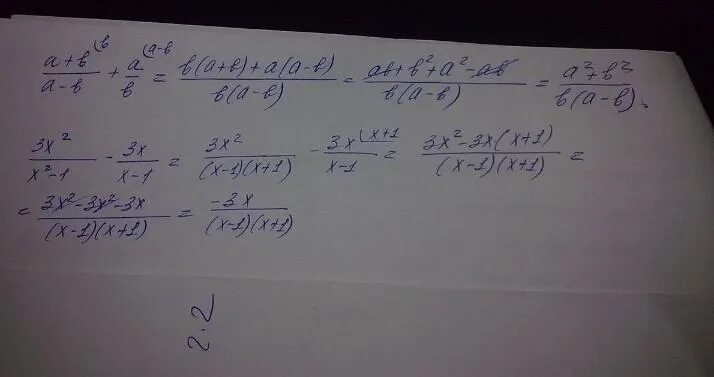 (a+b)/(a-b) ⁽ᵇ + a/b ⁽ᵃ⁻ᵇ = (b(a+b)+a(a-b))/(b(a-b)) = (ab+b²+a²-ab)/(b(a-b)) = (a²+b²)/(b(a-b)).
3x²/(x²-1) - 3x/(x-1) = 3x²/((x-1)(x+1)) - 3x/(x-1) ⁽ˣ⁺¹ = (3x²-3x(x+1))/((x-1)(x+1)) =
= (3x²-3x²-3x)/((x-1)(x+1)) = -3x/((x-1)(x+1))
2.2